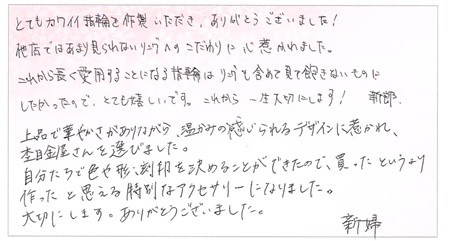 とてもカワイイ指輪を作製いただき、ありがとうございました！
他店ではあまり見られないリングへのこだわりに心惹かれました。
これから長く愛用することになる指輪はリングも含めて見て飽きないものに
したかったので、とても嬉しいです。これから一生大切にします！ 新郎
上品で華やかさがありながら、温かみの感じられるデザインに惹かれ、
杢目金屋さんを選びました。
自分たちで色や形、刻印を決めることができたので、買ったというより
作ったと思える特別なアクセサリーになりました。
大切にします。ありがとうございました。
新婦